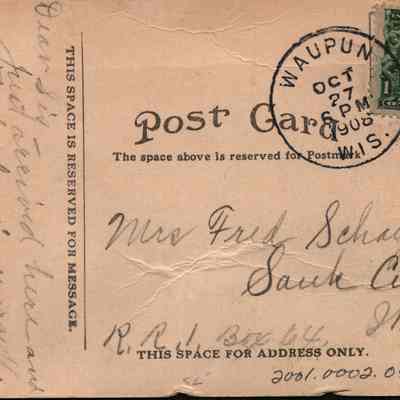 Dear Sis
Just arrived here and
THIS SPACE IS RESERVED FOR MESSAGE.
WAUPUN
OCT
27
6 PM
1908
WIS.
1
Post Card
The space above is reserved for Postmark
Mrs Fred Scha
Sauk C
R. R. 1, Box 64.
THIS SPACE FOR ADDRESS ONLY.
2001.0002.0